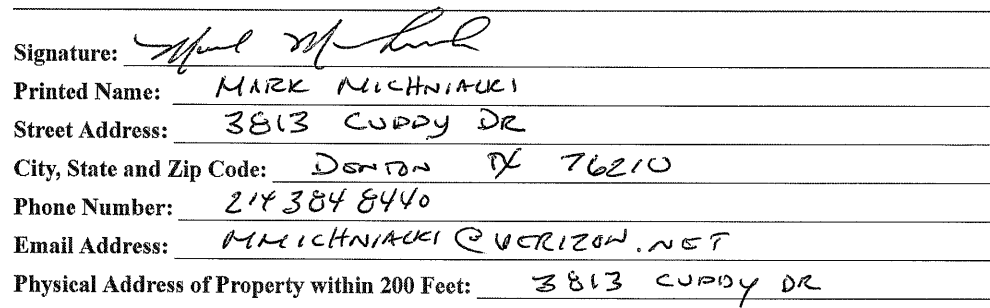 Signature:
Printed Name: MARK MICHNIAUKI
Street Address: 3813 CUDDY DR
City, State and Zip Code: DENTON TX 76210
Phone Number: 214 384 8440
Email Address: MMICHNIAUKI@VERIZON.NET
Physical Address of Property within 200 Feet: 3813 CUDDY DR